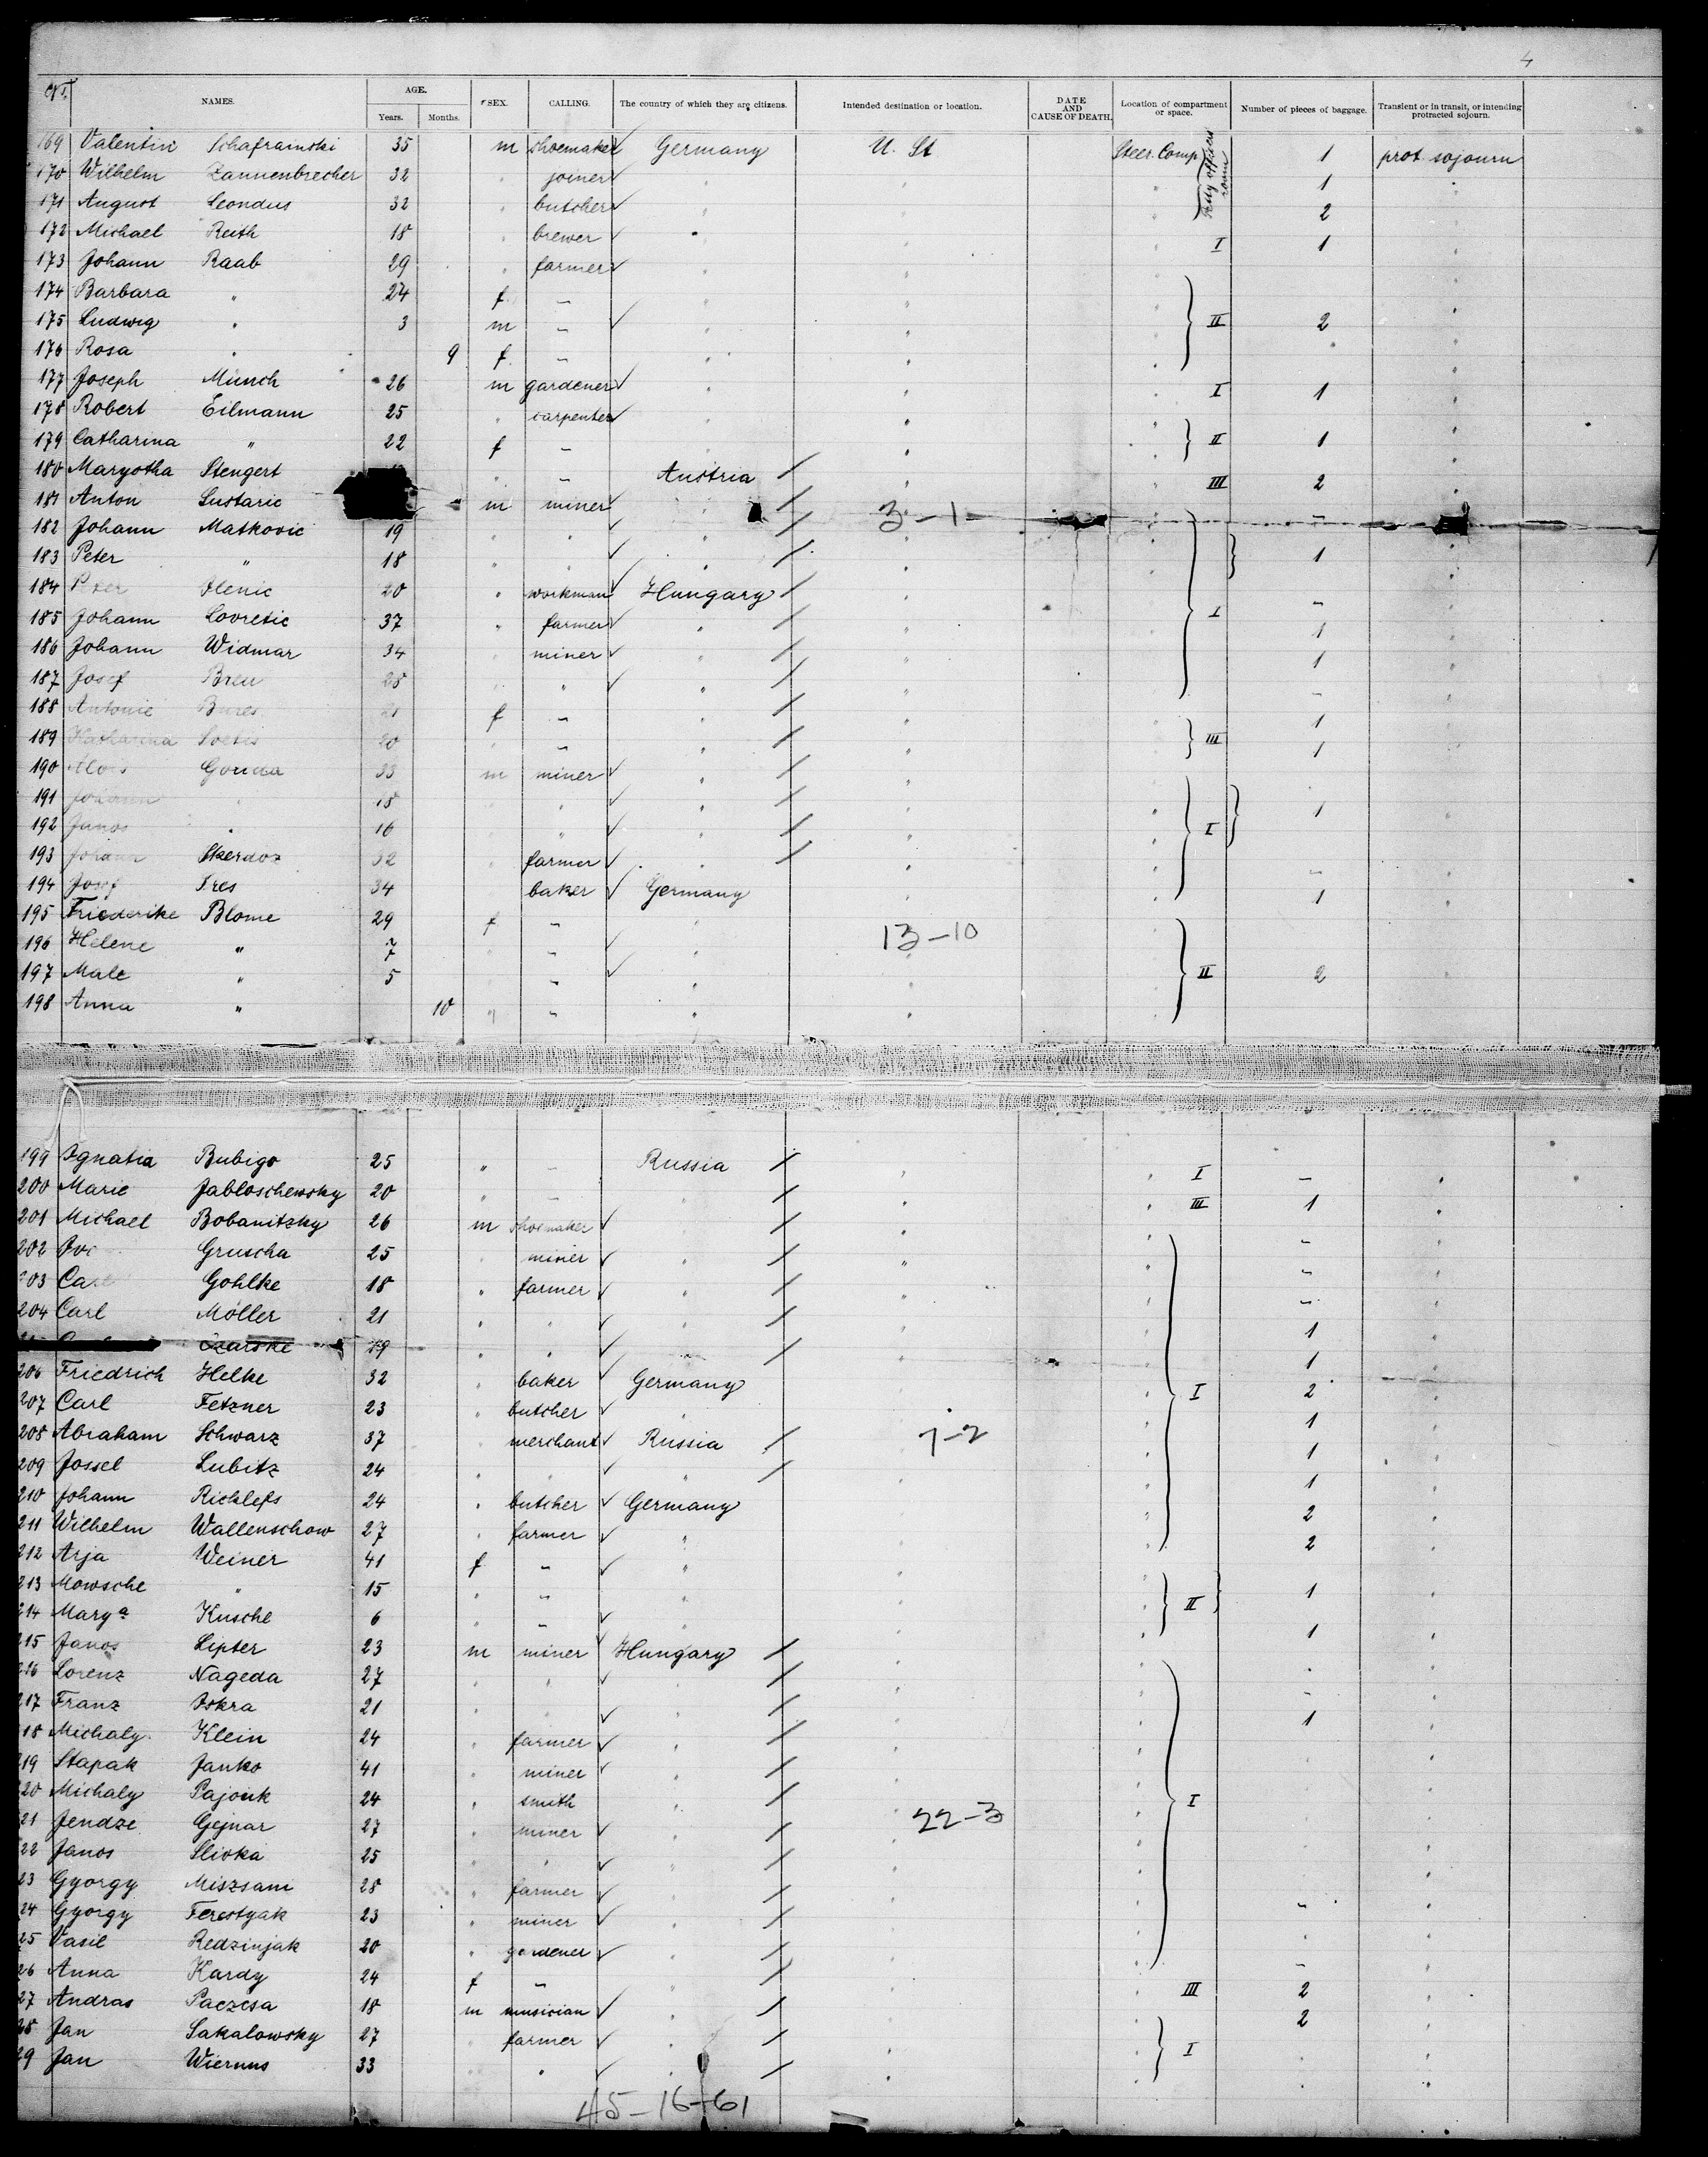 4
No. NAMES. AGE. Years. Months. SEX. CALLING. The country of which they are citizens. Intended destination or location. DATE AND CAUSE OF DEATH. Location of compartment or space. Number of pieces of baggage. Transient or in transit, or intending protracted sojourn.
169 Valentin Schaframski 35 m shoemaker Germany U. St Steer. Comp. Petty officers room 1 prot. sojourn
170 Wilhelm Zannenbrecher 32 " joiner " " " 1 "
171 August Leondus 32 " butcher " " " 2 "
172 Michael Reith 18 " brewer " " " I 1 "
173 Johann Raab 29 " farmer " " "
174 Barbara " 24 f. – " " "
175 Ludwig " 3 m – " " " II 2 "
176 Rosa " 9 f. – " " "
177 Joseph Münch 26 m gardener " " " I 1 "
178 Robert Eilmann 25 " carpenter " " "
179 Catharina " 22 f – " " " II 1 "
180 Maryotha Stengert " – Austria / " " III 2 "
181 Anton Sustaric m miner " / 3-1- –
182 Johann Matkovic 19 " " " / " "
183 Peter " 18 " " " / " " 1 "
184 Peter Ilenic 20 " workman Hungary / " " – "
185 Johann Lovretic 37 " farmer " / " " I 1 "
186 Johann Widmar 34 " miner " / " " 1 "
187 Josef Breu 28 " " " / " " – "
188 Antonie Bures 21 f – " / " " 1 "
189 Katharina 20 " – " / " " III 1 "
190 Gouda 33 m miner " / " "
191 Johann " 18 " " " / " " 1 "
192 Janos " 16 " " " / " " I "
193 Johann Skerdoz 32 " farmer " / " " – "
194 Josef Ires 34 " baker Germany " " 1 "
195 Friederike Blome 29 f – " 13-10 "
196 Helene " 7 " – " " "
197 Male " 5 " – " " " II 2 "
198 Anna " 10 " – " " "
199 Ignatia Bubigo 25 " – Russia / " " I – "
200 Marie Jabloschewsky 20 " – " / " " III 1 "
201 Michael Bobanitzky 26 m shoemaker " / " " – "
202 Gruscha 25 " miner " / " " – "
203 Carl Gohlke 18 " farmer " / " " – "
204 Carl Möller 21 " " " / " " 1 "
Czarske 19 " " " / " " 1 "
206 Friedrich Helke 32 " baker Germany " " I 2 "
207 Carl Fetzner 23 " butcher " " 1 "
208 Abraham Schwarz 37 " merchant Russia / 7-2 " 1 "
209 Jossel Lubitz 24 " " " / " " 1 "
210 Johann Richlefs 24 " butcher Germany " " 2 "
211 Wilhelm Wallenschow 27 " farmer " " " 2 "
212 Arja Weiner 41 f – " " "
213 Mowsche " 15 " – " " " II 1 "
214 Marya Kusche 6 " – " " " 1 "
215 Janos Lipter 23 m miner Hungary / " " "
216 Lorenz Nageda 27 " " " / " " – "
217 Franz Iskra 21 " " " / " " 1 "
18 Michaly Klein 24 " farmer " / " " "
19 Stapak Janko 41 " miner " / " " "
20 Michaly Pajonk 24 " smith " / " " I "
21 Jendze Gejnar 27 " miner " / 22-3 " "
22 Janos Slivka 25 " " " / " " "
23 Gyorgy Miszsani 28 " farmer " / " " – "
24 Gyorgy Ferestyak 23 " miner " / " " "
25 Vasil Redzinjak 20 " gardener " / " " – "
26 Anna Kardy 24 f – " / " " III 2 "
27 Andras Paczcsa 18 m musician " / " " 2 "
28 Jan Sakalowsky 27 " farmer " / " " I "
29 Jan Wiernus 33 " " " / " " "
45-16-61